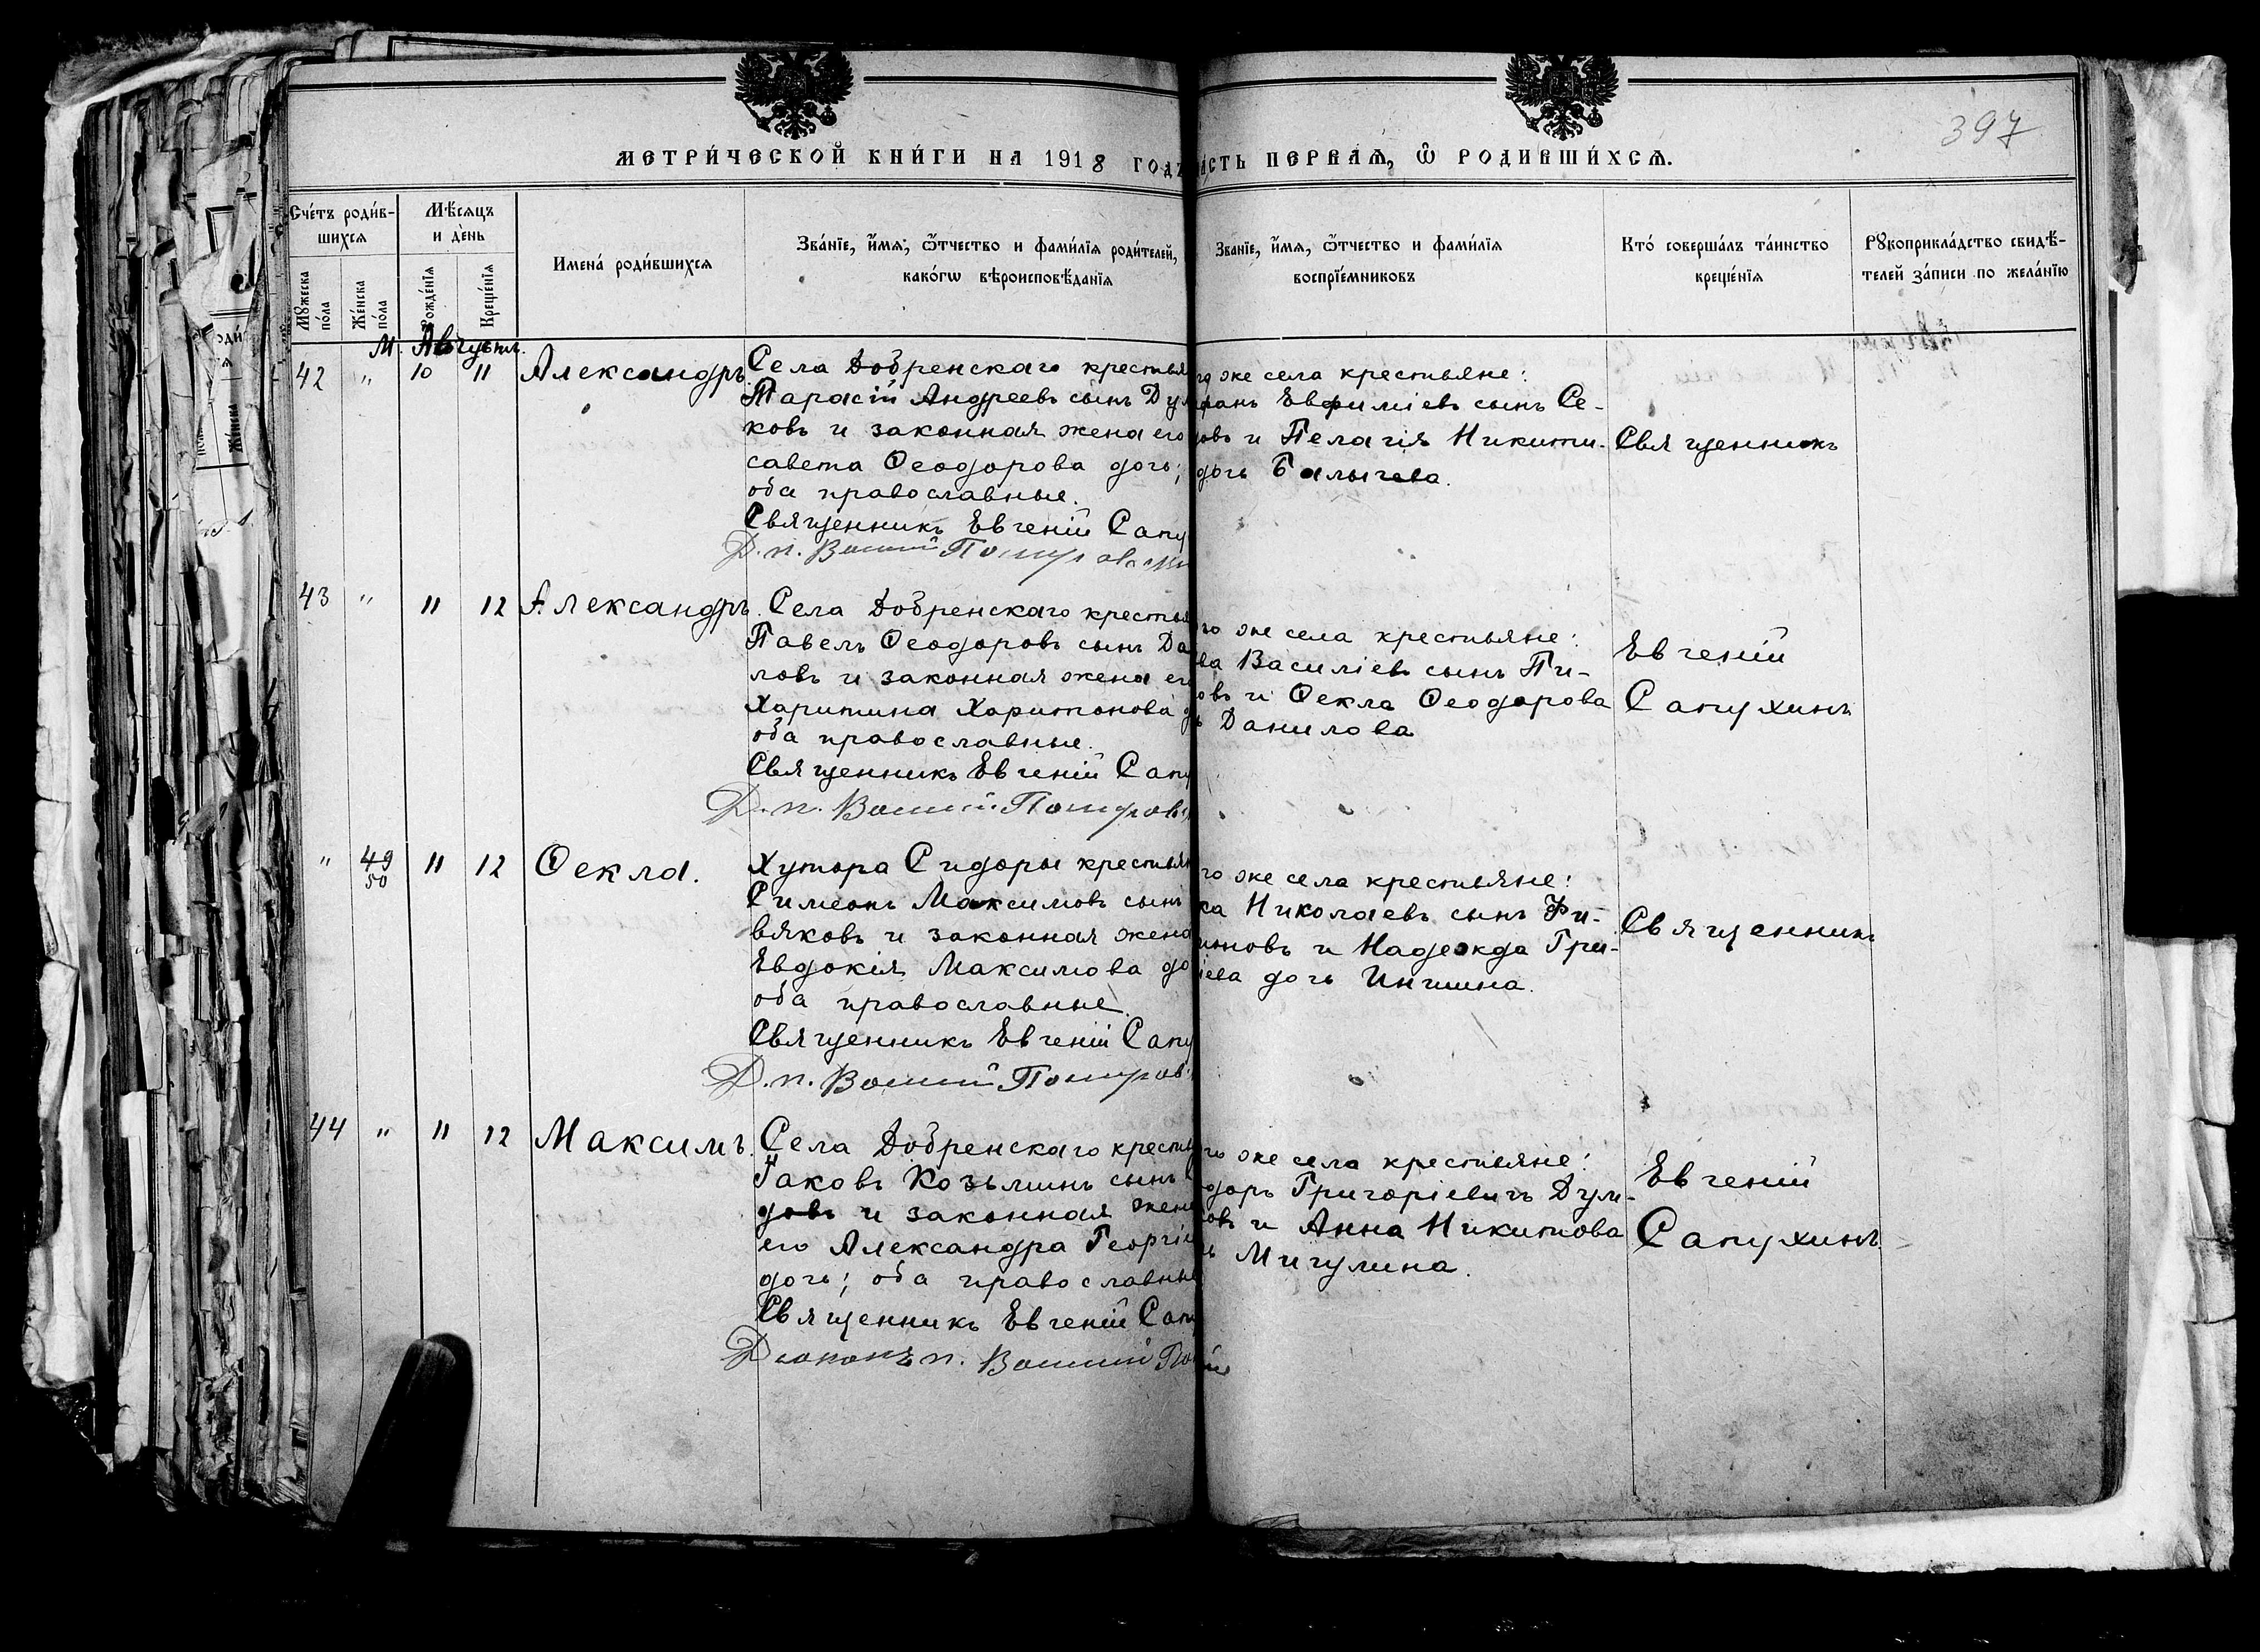 397
МЕТРИ́ЧЕСКОЙ КНИ́ГИ НА 1918 ГОДЪ
АСТЬ ПЕРВАѦ, Ѽ РОДИВШИ́ХСѦ.
Сче́тъ роди́в-
шихсѧ
Мꙋжеска по́ла
Же́нска по́ла
Мѣ́сѧцъ
и де́нь
Рожде́нїѧ
Креще́нїѧ
Имена́ роди́вшихсѧ
Зва́нїе, и҆́мѧ, ѻ҆́тчество и фами́лїѧ роди́телей,
како́гѡ вѣроисповѣ́данїѧ
Зва́нїе, и҆́мѧ, ѻ҆́тчество и фами́лїѧ
воспрїе́мниковъ
Кто́ соверша́лъ та́инство
креще́нїѧ
Рꙋкоприкла́дство свидѣ́-
телей за́писи по жела́нїю
М. Августъ.
42 " 10 11 Александръ.
Села Добренскаго крестья
Тарасій Андреевъ сынъ Дум
ковъ и законная жена его
савета Ѳеодорова дочь;
оба православные.
Священникъ Евгеній Сапу
Д. п.
го же села крестьяне:
фанъ Евфиміевъ сынъ Се-
овъ и Пелагія Никити-
дочь Балычева.
Священникъ
43 " 11 12 Александръ.
Села Добренскаго крестья
Павелъ Ѳеодоровъ сынъ Да
ловъ и законная жена ег
Харитина Харитонова д
оба православные.
Священникъ Евгеній Сапу
Д. п.
го же села крестьяне:
ва Василіевъ сынъ Пи-
овъ и Ѳекла Ѳеодорова
ь Данилова
Евгеній
Сапухинъ
" 49 11 12 Ѳекла.
50
Хутора Сидоры крестьян
Симеонъ Максимовъ сынъ
вяковъ и законная жена
Евдокія Максимова до
оба православные.
Священникъ Евгеній Сапу
Д. п.
го же села крестьяне:
ка Николаевъ сынъ Фи-
моновъ и Надежда Гри-
іева дочь Иншина.
Священникъ
44 " 11 12 Максимъ.
Села Добренскаго кресть
Іаковъ Козьминъ сынъ
довъ и законная жена
его Александра Георгіе
дочь; оба православные
Священникъ Евгеній Сапу
Діаконъ п.
го же села крестьяне:
доръ Григоріевичъ Дум-
овъ и Анна Никитова
ь Мигулина.
Евгеній
Сапухинъ